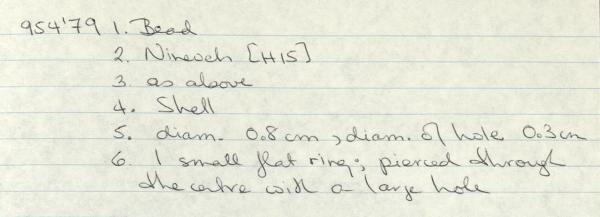 954'79 1. Bead
2. Nineveh [H15]
3. as above
4. Shell
5. diam. 0.8 cm, diam. of hole 0.3 cm
6. 1 small flat ring; pierced through
the centre with a large hole